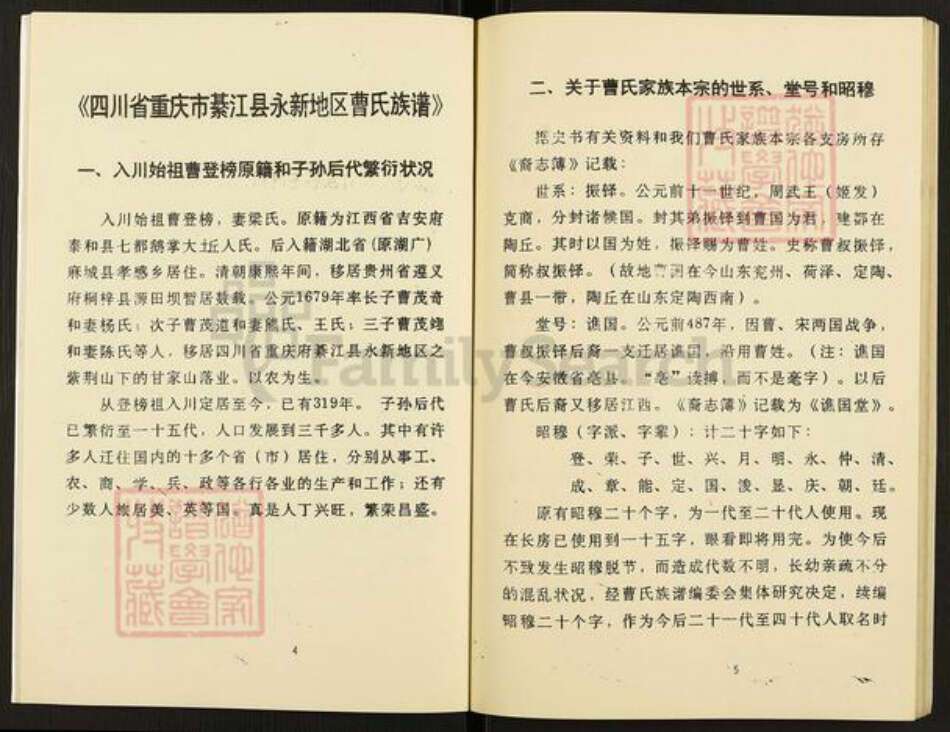 《四川省重庆市綦江县永新地区曹氏族谱》
一、入川始祖曹登榜原籍和子孙后代繁衍状况
入川始祖曹登榜，妻梁氏。原籍为江西省吉安府
泰和县七都鹅掌大丘人氏。后入籍湖北省(原湖广)
麻城县孝感乡居住。清朝康熙年间，移居贵州省遵义
府桐梓县源田坝暂居数载。公元1679年率长子曹茂奇
和妻杨氏；次子曹茂道和妻熊氏、王氏；三子曹茂
和妻陈氏等人，移居四川省重庆府綦江县永新地区之
紫荆山下的甘家山落业。以农为生。
从登榜祖入川定居至今，已有319年。 子孙后代
已繁衍至一十五代，人口发展到三千多人。其中有许
多人迁往国内的十多个省（市）居住，分别从事工、
农、商、学、兵、政等各行各业的生产和工作；还有
少数人旅居美、英等国。真是人丁兴旺，繁荣昌盛。
4
二、关于曹氏家族本宗的世系、堂号和昭穆
据史书有关资料和我们曹氏家族本宗各支房所存
《裔志簿》记载：
世系：振铎。公元前十一世纪，周武王（姬发）
克商，分封诸候国。封其弟振铎到曹国为君，建都在
陶丘。其时以国为姓，振铎赐为曹姓。史称曹叔振铎，
简称叔振铎。（故地曹国在今山东兖州、荷泽、定陶、
曹县一带，陶丘在山东定陶西南）。
堂号：谯国。公元前487年，因曹、宋两国战争，
曹叔振铎后裔一支迁居谯国，沿用曹姓。（注：谯国
在今安徽省亳县，“亳”读搏，而不是毫字）。以后
曹氏后裔又移居江西。《裔志簿》记载为《谯国堂》。
昭穆（字派、字辈）：计二十字如下：
登、荣、子、世、兴、月、明、永、仲、清、
成、章、能、定、国、浚、显、庆、朝、廷。
原有昭穆二十个字，为一代至二十代人使用。现
在长房已使用到一十五字，眼看即将用完。为使今后
不致发生昭穆脱节，而造成代数不明，长幼亲疏不分
的混乱状况，经曹氏族谱编委会集体研究决定，续编
昭穆二十个字，作为今后二十一代至四十代人取名时
5
FamilySearch